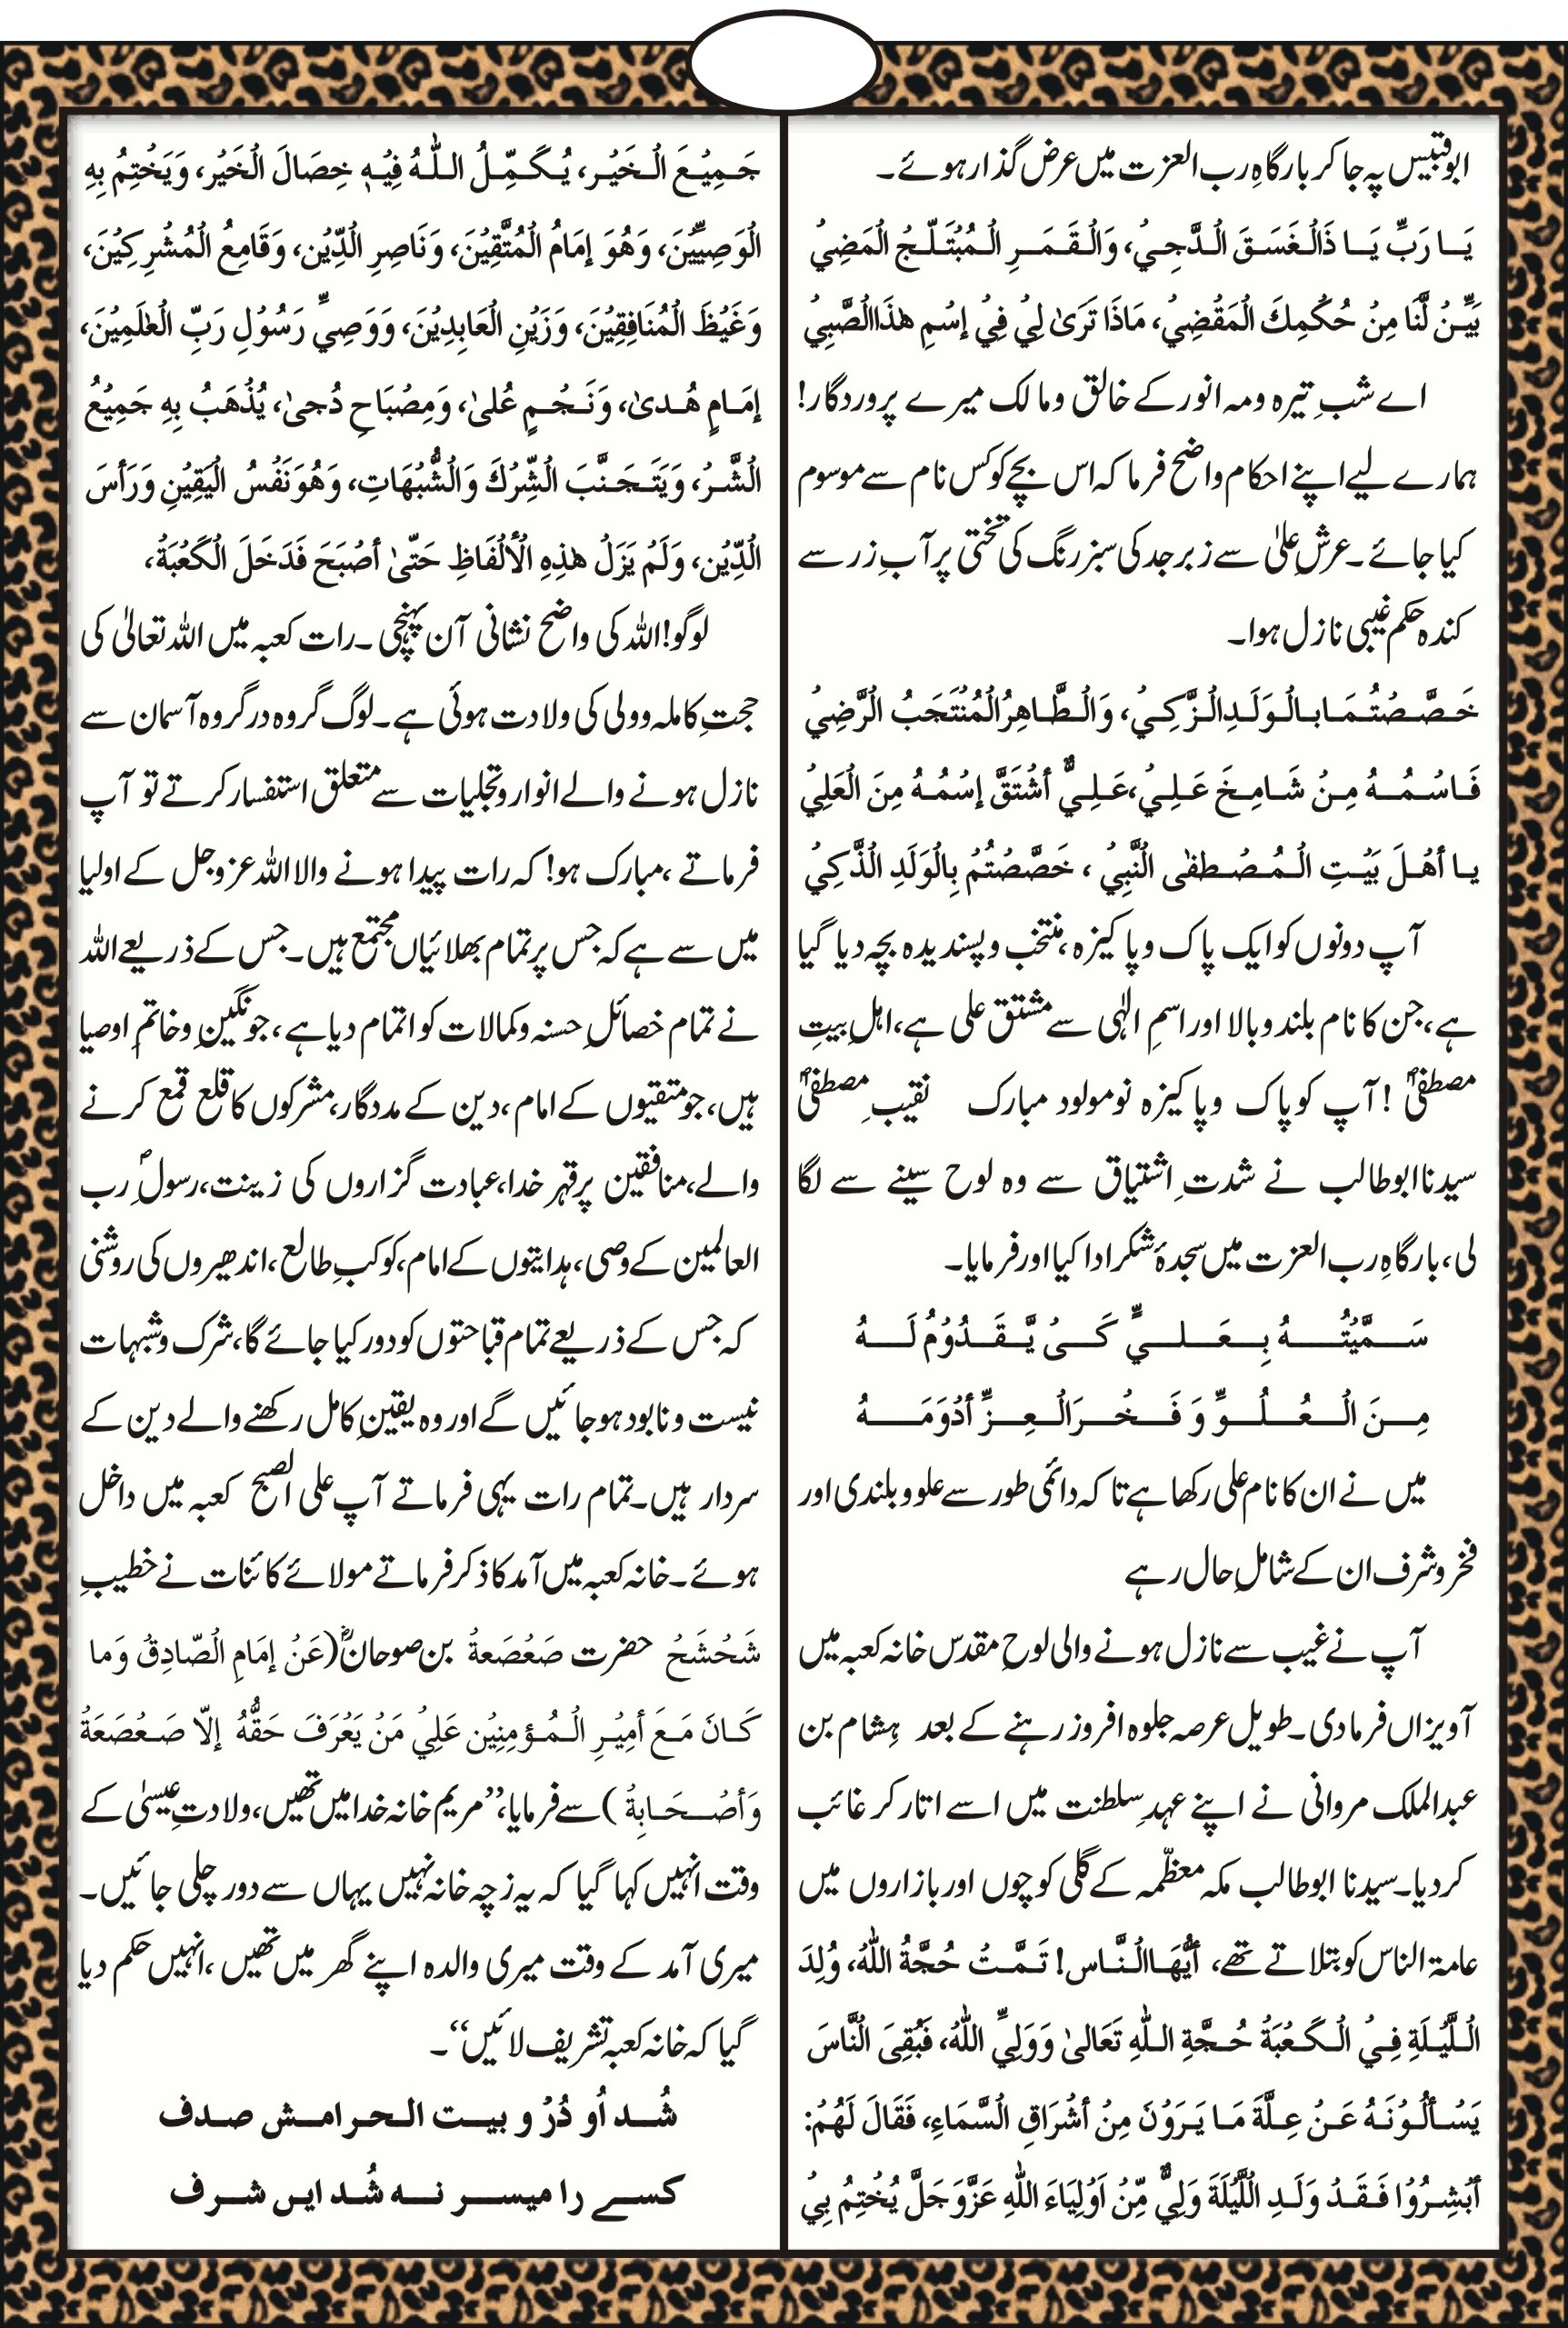 ابوقبیس پہ جا کر بارگاہِ رب العزت میں عرض گذار ہوئے۔
يَا رَبِّ يَا ذَالْغَسَقَ الْدَّجِيْ، وَالْقَمَرِ الْمُبْتَلَّجُ الْمَضِيْ
بَيِّنْ لَّنَا مِنْ حُكْمِكَ الْمَقْضِيْ، مَاذَا تَرَىٰ لِيْ فِيْ إسْمِ هٰذَاالْصَّبِيْ
اے شبِ تیرہ ومہ انور کے خالق و مالک میرے پروردگار!
ہمارے لیے اپنے احکام واضح فرما کہ اس بچے کو کس نام سے موسوم
کیا جائے۔ عرشِ علیٰ سے زبرجد کی سبز رنگ کی تختی پر آبِ زر سے
کندہ حکم غیبی نازل ہوا۔
خَصَّصْتُمَا بِالْوَلَدِالْزَّكِيْ، وَالْطَّاهِرُالْمُنْتَجَبُ الْرَّضِيْ
فَاسْمُهُ مِنْ شَامِخَ عَلِيْ، عَلِيٌّ أشْتَقَّ إسْمُهُ مِنَ الْعَلِيْ
يا أهْلَ بَيْتِ الْمُصْطفٰى الْنَّبِيْ ، خَصَّصْتُمْ بِالْوَلَدِ الْذَّكِيْ
آپ دونوں کو ایک پاک و پاکیزہ، منتخب و پسندیدہ بچہ دیا گیا
ہے، جن کا نام بلند و بالا اور اسمِ الٰہی سے مشتق علی ہے، اہلِ بیتِ
مصطفیٰؐ! آپ کو پاک و پاکیزہ نومولود مبارک نقیبِ مصطفیٰؐ
سیدنا ابوطالب نے شدتِ اشتیاق سے وہ لوح سینے سے لگا
لی، بارگاہِ رب العزت میں سجدۂ شکر ادا کیا اور فرمایا۔
سَمَّيْتُهُ بِعَلِيٍّ كَىْ يَّقَدُوْمُ لَهُ
مِنَ الْعُلُوِّ وَ فَخْرَالْعِزِّ أدْوَمَهُ
میں نے ان کا نام علی رکھا ہے تا کہ دائمی طور سے علو و بلندی اور
فخر و شرف ان کے شاملِ حال رہے
آپ نے غیب سے نازل ہونے والی لوحِ مقدس خانہ کعبہ میں
آویزاں فرمادی۔ طویل عرصہ جلوہ افروز رہنے کے بعد ہشام بن
عبدالملک مروانی نے اپنے عہدِ سلطنت میں اسے اتار کر غائب
کردیا۔ سیدنا ابوطالب مکہ معظّمہ کے گلی کوچوں اور بازاروں میں
عامۃ الناس کو بتلاتے تھے، أيُّهَاالْنَّاس! تَمَّتْ حُجَّةُ اللّٰهُ، وُلِدَ
الْلَّيْلَةِ فِيْ الْكَعْبَةُ حُجَّةِ اللّٰهِ تَعَالىٰ وَوَلِيِّ اللّٰهُ، فَبُقِىَ الْنَّاسَ
يَسْألُوْنَهُ عَنْ عِلَّةَ مَا يَرَوْنَ مِنْ أشْرَاقِ الْسَّمَاءِ، فَقَالَ لَهُمْ:
أبْشِرُوْا فَقَدْ وَلَدِ الْلَّيْلَةَ وَلِيٌّ مِّنْ اَوْلِيَاءَ اللّٰهِ عَزَّوَجَلَّ يُخْتِمُ بِيْ
جَمِيْعَ الْخَيْر، يُكَمِّلُ اللّٰهُ فِيْهٖ خِصَالَ الْخَيْر، وَيَخْتِمُ بِهِ
الْوَصِيِّيْنَ، وَهُوَ إمَامُ الْمُتَّقِيْنَ، وَنَاصِرِ الْدِّيْن، وَقَامِعُ الْمُشْرِكِيْنَ،
وَغَيْظَ الْمُنَافِقِيْنَ، وَزَيْنِ الْعَابِدِيْنَ، وَوَصِيِّ رَسُوْلِ رَبِّ الْعٰلَمِيْنَ،
إمَامٍ هُدىٰ، وَنَجْمٍ عُلىٰ، وَمِصْبَاحِ دُجىٰ، يُذْهَبُ بِهِ جَمِيْعُ
الْشَّرْ، وَيَتَجَنَّبَ الْشِّرْكَ وَالْشُّبْهَاتِ، وَهُوَنَفْسُ الْيَقِيْنِ وَرَأسَ
الْدِّيْن، وَلَمْ يَزَلْ هٰذِهِ الْألْفَاظِ حَتّىٰ أصْبَحَ فَدَخَلَ الْكَعْبَةُ،
لوگو! اللہ کی واضح نشانی آن پہنچی۔ رات کعبہ میں اللہ تعالیٰ کی
حجتِ کاملہ و ولی کی ولادت ہوئی ہے۔ لوگ گروہ در گروہ آسمان سے
نازل ہونے والے انوار و تجلیات سے متعلق استفسار کرتے تو آپ
فرماتے، مبارک ہو! کہ رات پیدا ہونے والا اللہ عزوجل کے اولیا
میں سے ہے کہ جس پر تمام بھلائیاں مجتمع ہیں۔ جس کے ذریعے اللہ
نے تمام خصائلِ حسنہ و کمالات کو اتمام دیا ہے، جو نگینِ و خاتمِ اوصیا
ہیں، جو متقیوں کے امام، دین کے مددگار، مشرکوں کا قلع قمع کرنے
والے، منافقین پر قہر خدا، عبادت گزاروں کی زینت، رسولِؐ رب
العالمین کے وصی، ہدایتوں کے امام، کوکبِ طالع، اندھیروں کی روشنی
کہ جس کے ذریعے تمام قباحتوں کو دور کیا جائے گا، شرک و شبہات
نیست و نابود ہو جائیں گے اور وہ یقینِ کامل رکھنے والے دین کے
سردار ہیں۔ تمام رات یہی فرماتے آپ علی الصبح کعبہ میں داخل
ہوئے۔ خانہ کعبہ میں آمد کا ذکر فرماتے مولائے کائنات نے خطیبِ
شَحْشَحْ حضرت صَعْصَعةْ بن صوحانؓ (عَنْ إمَامِ الْصَّادِقْ وَما
كَانَ مَعَ أمِيْرِ الْمُؤمِنِيْن عَلِيْ مَنْ يَعْرَفَ حَقُّهُ إلّا صَعْصَعَةْ
وَأصْحَابِهُ) سے فرمایا، ”مریم خانہ خدا میں تھیں، ولادتِ عیسیٰ کے
وقت انہیں کہا گیا کہ یہ زچہ خانہ نہیں یہاں سے دور چلی جائیں۔
میری آمد کے وقت میری والدہ اپنے گھر میں تھیں، انہیں حکم دیا
گیا کہ خانہ کعبہ تشریف لائیں“۔
شُد اُو دُرْ و بیت الحرامش صدف
کسے را میسر نہ شُد ایں شرف